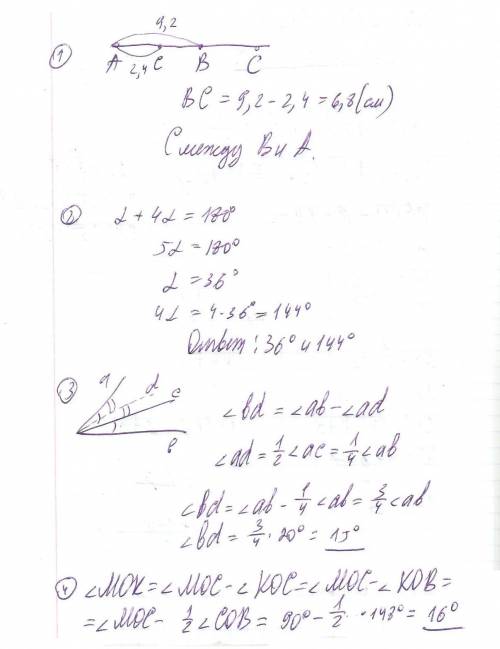 9,2
① A 2,4 C B C
BC = 9,2 - 2,4 = 6,8 (см)
C между B и A.
② α + 4α = 180°
5α = 180°
α = 36°
4α = 4·36° = 144°
Ответ: 36° и 144°
③ a d c
b
∠bd = ∠ab - ∠ad
∠ad = 1/2 ∠ac = 1/4 ∠ab
∠bd = ∠ab - 1/4 ∠ab = 3/4 ∠ab
∠bd = 3/4 · 20° = 15°
④ ∠MOK = ∠MOC - ∠KOC = ∠MOC - ∠KOB =
= ∠MOC - 1/2 ∠COB = 90° - 1/2 · 148° = 16°